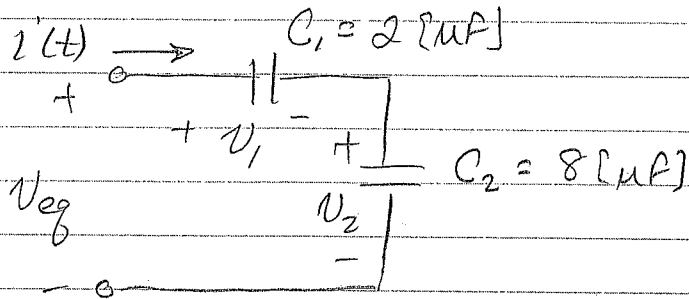 i(t) → C₁ = 2 [μF]
+
+ v₁ -
+
C₂ = 8 [μF]
veq
v₂
-
-